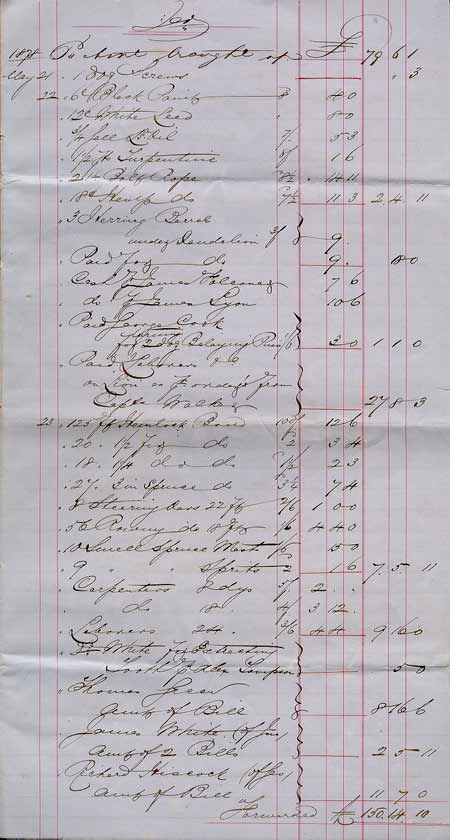 1878 To Amt brought up £ 79 6 1
May 21 . 1 dog Screws . 3
22 . 6 lb Black Paint 8 4 0
. 12 White Lead 8 0
. 3/4 Gall Oil 7/ 5 3
. 1 1/2 Turpentine 1 6
. Rope 8 1/2 . 14 11
. 18 Hemp do 7 1/2 11 3 2. 4. 11
. 3 Herring Barrels
under Dandelion 3/ 9.
. Paid for do 9. 18 0
Cash James Falconer 7 6
. do James Lyon 10 6
. Paid George Cook
turning
for 2 dog Belaying Pins 1/6 3 0 1 1 0
. Paid Laborers &c
from
Capt Walker 27 8 3
23 . 125 ft Hemlock Board 10 12 6
. 20 . 1/2 do 2 3 4
. 18 . 1/4 do do 1/2 2 3
. 27. 3 in Spruce do 3 1/4 7 4
. 8 Steering Oars 22 ft 2/6 1 0 0
. 56 Rowing do 18 ft 1/6 4 4 0
. 10 Small Spruce Masts 5 0
. 9 " " Sprits 2 1 6 7. 5 11
. Carpenters 8 dys 5/ 2 .
. do 18 4/ 3 12 .
. Laborers 24 . 3/6 4 4 9 16 0
. Dr White for Extracting
Tooth 5 0
. Thomas
Amt of Bill 8 16 6
. James White
Amt of 2 Bills 2 5 11
. Richard Hiscock
Amt of Bill 11 7 0
Forwarded £ 150. 14. 10